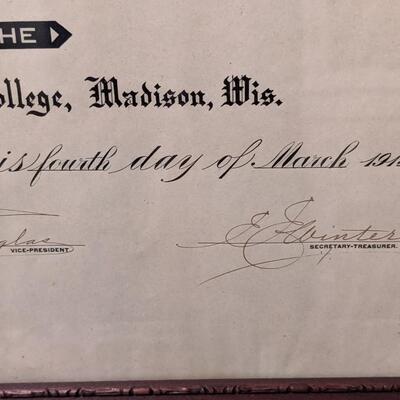 THE
ollege, Madison, Wis.
is fourth day of March 191
glas
VICE-PRESIDENT.
E J Winter
SECRETARY-TREASURER.